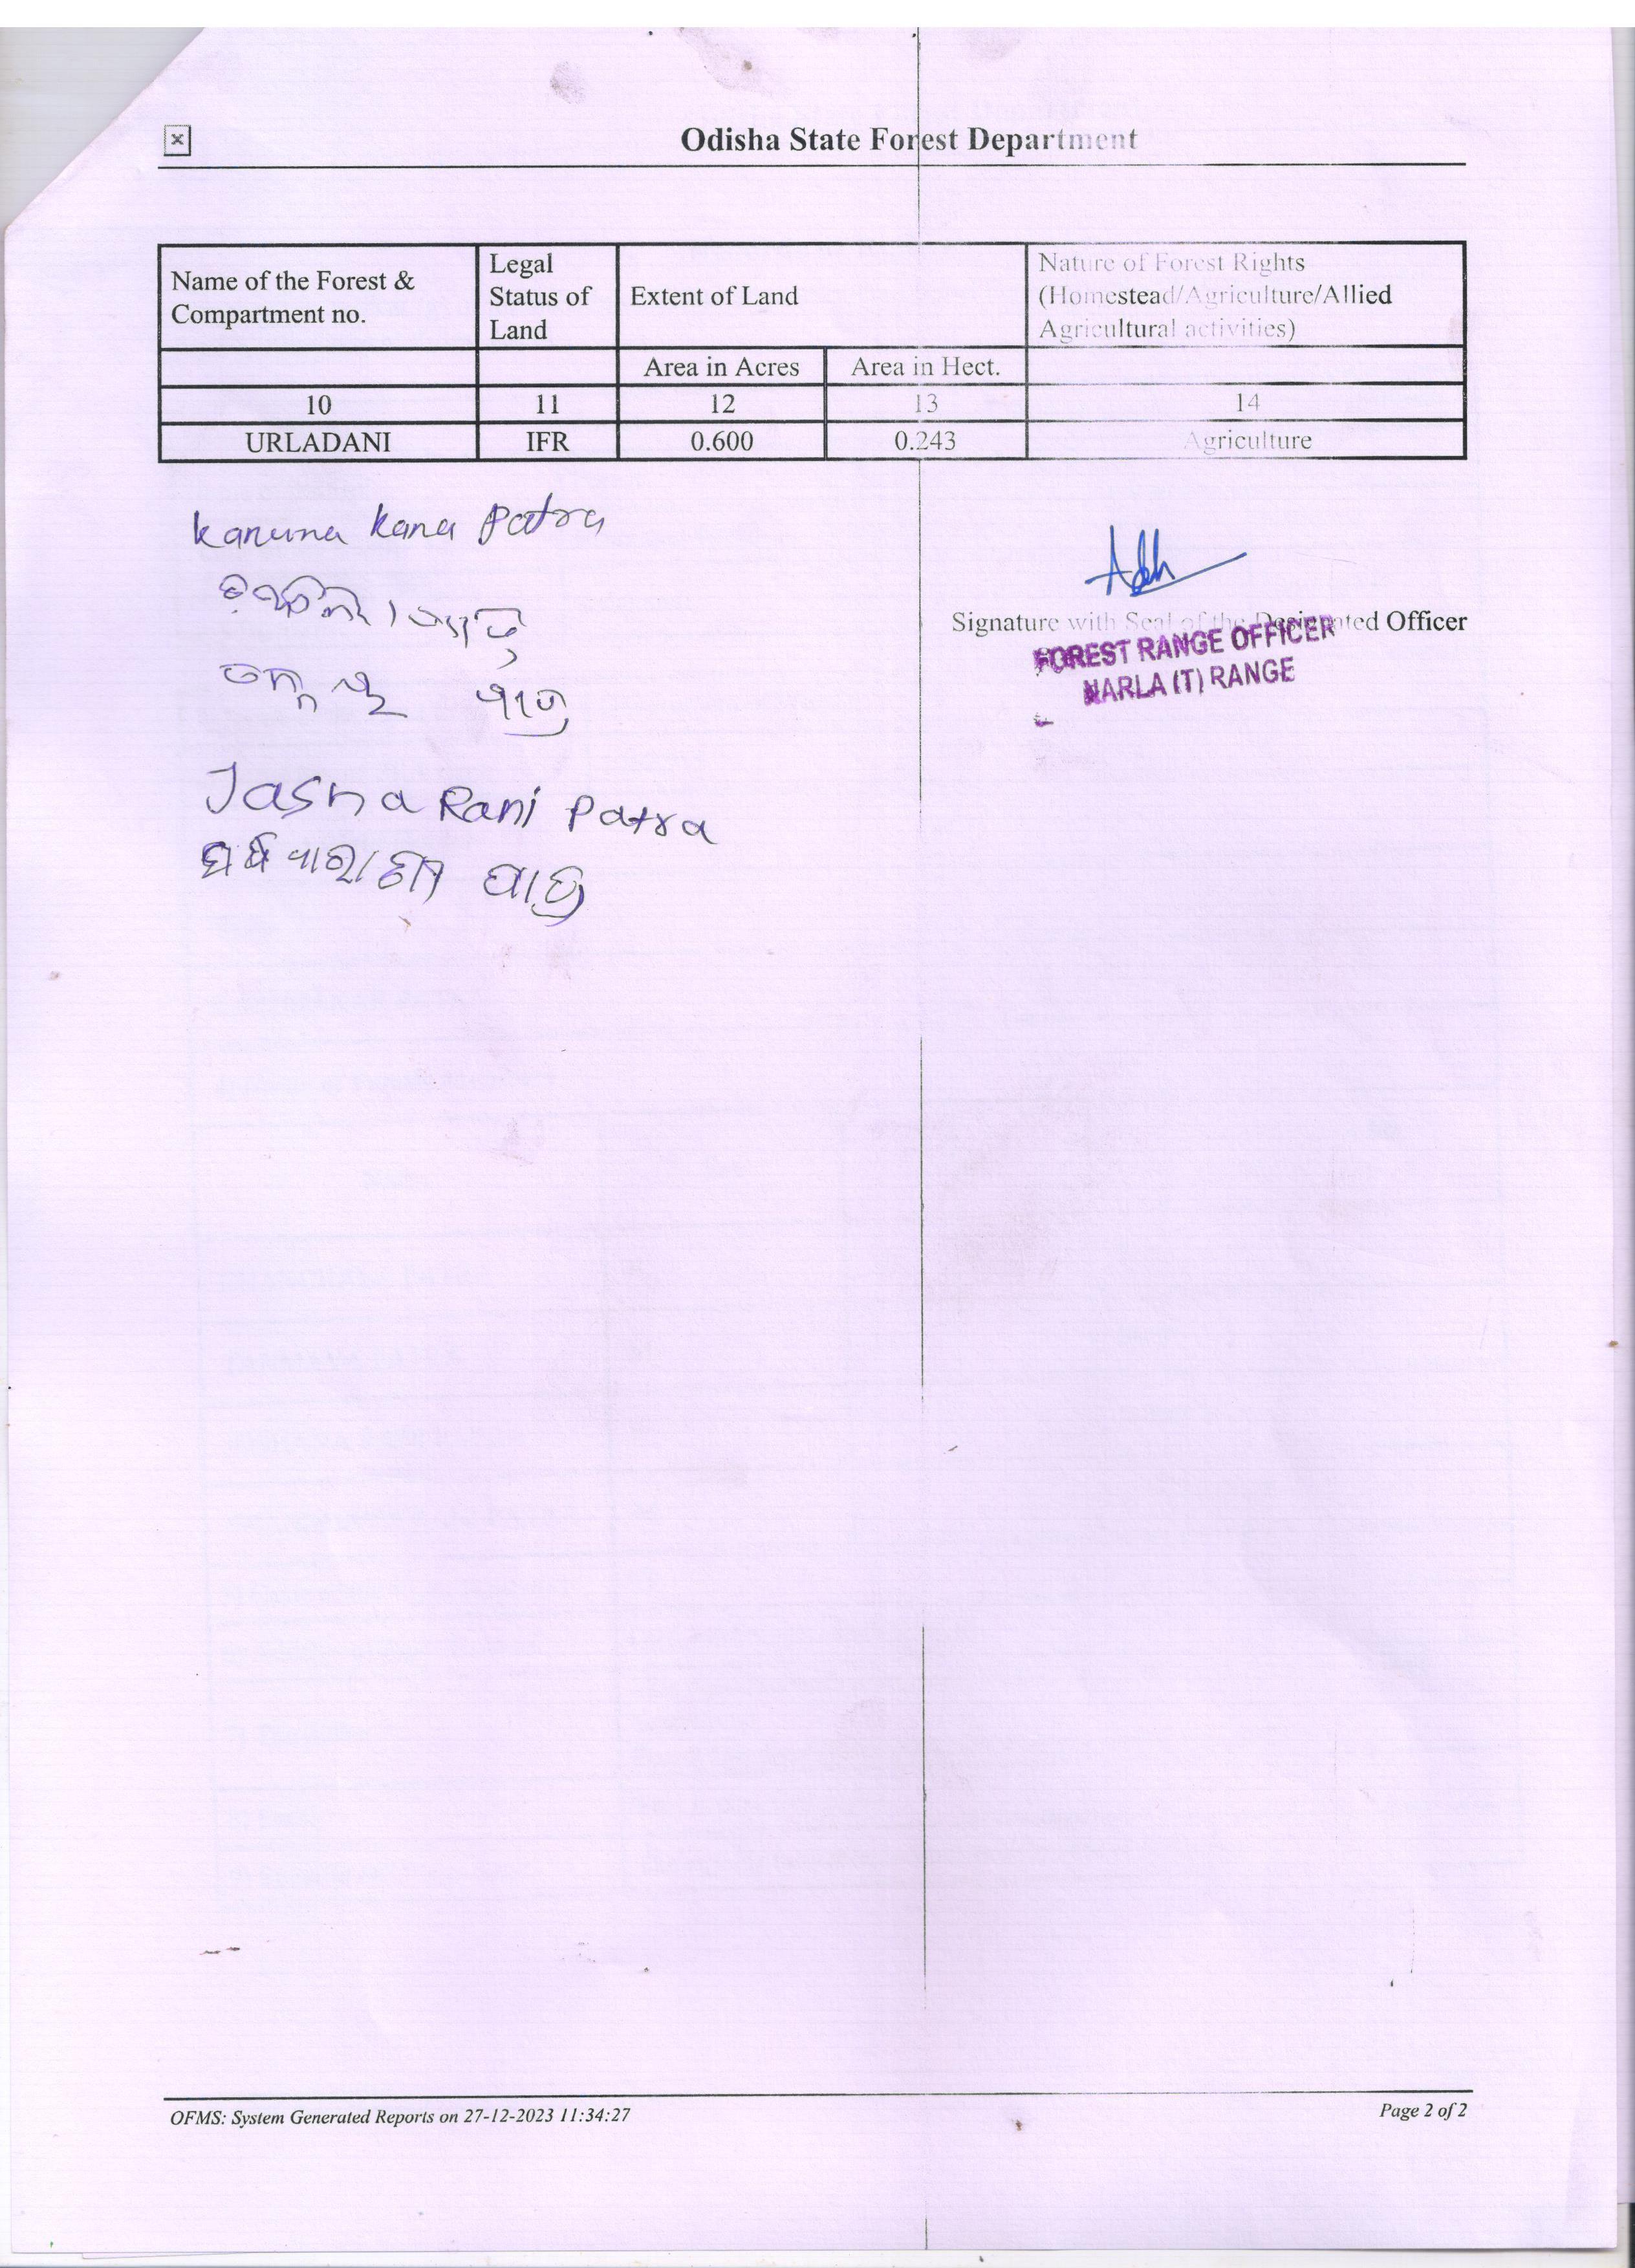 Odisha State Forest Department
Name of the Forest & Compartment no.
Legal Status of Land
Extent of Land
Nature of Forest Rights (Homestead/Agriculture/Allied Agricultural activities)
Area in Acres Area in Hect.
10 11 12 13 14
URLADANI IFR 0.600 0.243 Agriculture
Karuna Kana Patra
ପାତ୍ର
Jasna Rani Patra
ପାତ୍ର
Signature with Seal of the Designated Officer
FOREST RANGE OFFICER
NARLA (T) RANGE
OFMS: System Generated Reports on 27-12-2023 11:34:27
Page 2 of 2